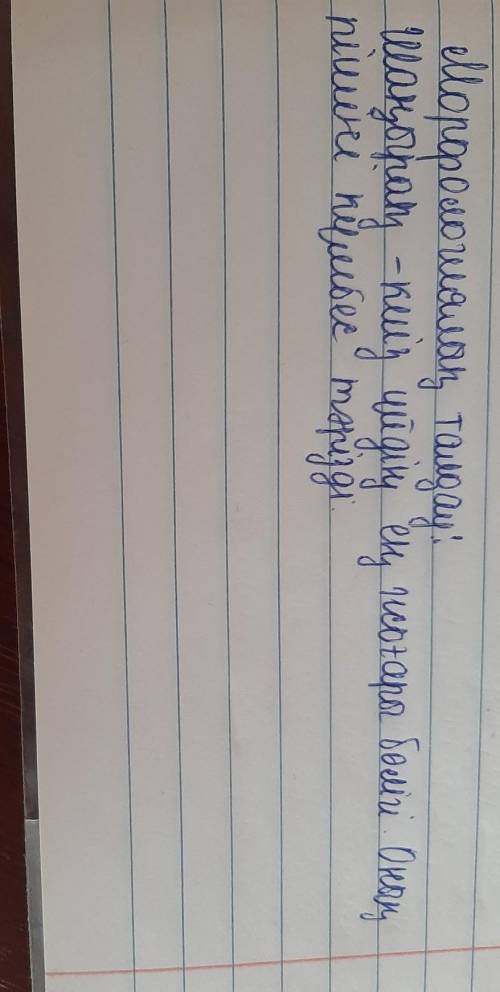 Морфологиялық талдау:
Шаңырақ - киіз үйдің ең жоғары бөлігі. Оның
пішіні күмбез тәрізді.